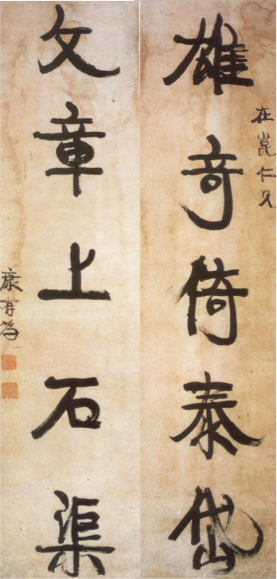 在崑仁兄
雄奇倚泰岱
文章上石渠
康有為